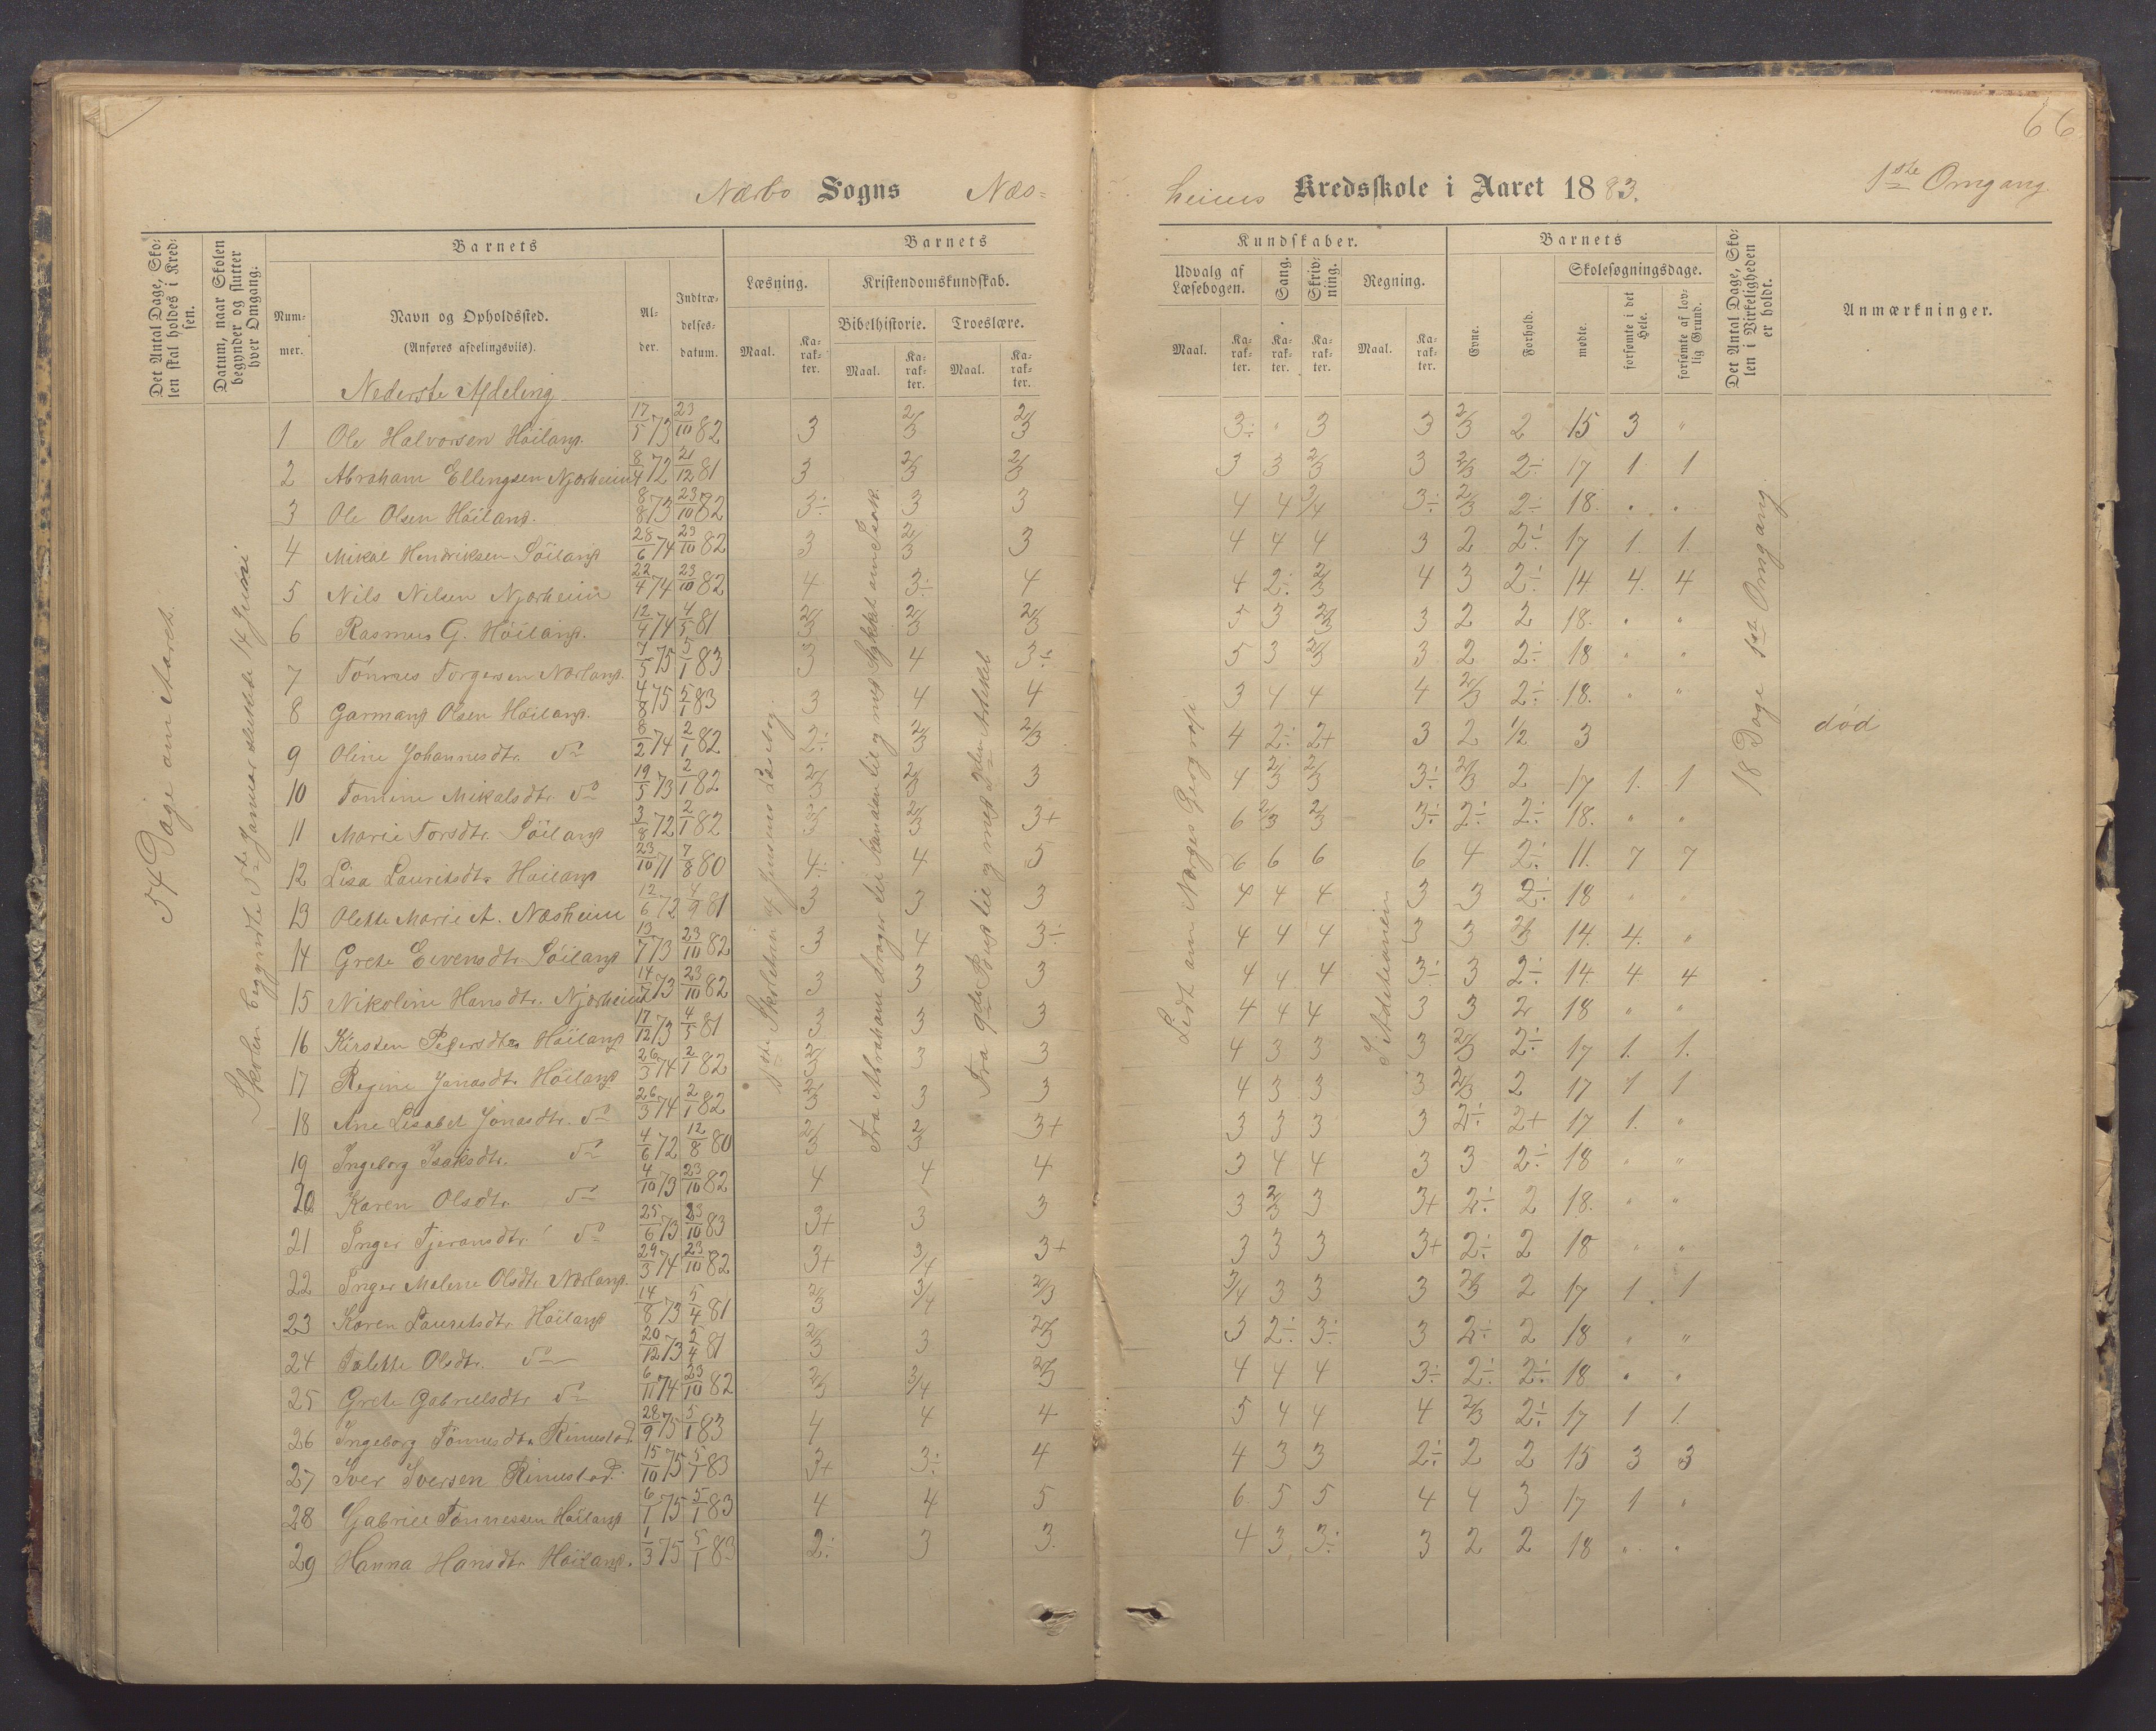 66
Nærbo Sogns Næs=
heims Kredsskole i Aaret 1883. 1ste Omgang.
Det Antal Dage, Skolen skal holdes i Kredsen.
Datum, naar Skolen begynder og slutter hver Omgang.
Barnets
Nummer.
Navn og Opholdssted.
(Anføres afdelingsviis).
Alder.
Indtrædelsesdatum.
Barnets
Læsning.
Maal.
Karakter.
Kristendomskundskab.
Bibelhistorie.
Maal.
Karakter.
Troeslære.
Maal.
Karakter.
Kundskaber.
Udvalg af Læsebogen.
Maal.
Karakter.
Sang.
Karakter.
Skrivning.
Karakter.
Regning.
Maal.
Karakter.
Barnets
Evne.
Forhold.
Skolesøgningsdage.
mødte.
forsømte i det Hele.
forsømte af lovlig Grund.
Det Antal Dage, Skolen i Virkeligheden er holdt.
Anmærkninger.
Nederste Afdeling
54 Dage om Aaret.
Skolen begyndte 5te Januar sluttede 14 Juni
1ste Skoletrin af Jensens Læsebog.
Fra Abraham drager til Kanaan til og med Stykket om Isak.
Fra 9de Bud til og med 2den Artikel
Lidt om Norges Geografi
I Additionen
18 Dage 1ste Omgang
1 Ole Halvorsen Höiland. 17/5 73 23/10 82 3 2/3 2/3 3÷ " 3 3 2/3 2 15 3 "
2 Abraham Ellingsen Njærheim 8/4 72 21/12 81 3 2/3 2/3 3 3 2/3 3 2/3 2÷ 17 1 1
3 Ole Olsen Höiland. 8/8 73 23/10 82 3÷ 3 3 4 4 3/4 3÷ 2/3 2÷ 18. " "
4 Mikal Hendriksen Söiland 28/6 74 23/10 82 3 2/3 3 4 4 4 3 2 2÷ 17 1. 1.
5 Nils Nilsen Njærheim 22/4 74 23/10 82 4 3÷ 4 4 2÷ 2/3 4 3 2÷ 14 4. 4
6 Rasmus G. Höiland. 12/4 74 4/5 81 2/3 2/3 2/3 5 3 2/3 3 2 2 18. " "
7 Tönnes Torgersen Nærland. 7/5 75 5/1 83 3 4 3÷ 5 3 2/3 3 2 2÷ 18 " "
8 Garmand Olsen Höiland. 4/8 75 5/1 83 3 4 4 3 4 4 4 2/3 2÷ 18. " "
9 Oline Johannesdtr. do 8/2 74 2/1 82 2÷ 2/3 2/3 4 2÷ 2+ 3 2 1/2 3 død
10 Tomine Mikalsdtr. do 19/5 73 2/1 82 2/3 2/3 3 4 2/3 2/3 3÷ 2/3 2 17 1. 1
11 Marie Torsdtr. Söiland 3/8 72 2/1 82 2/3 2/3 3+ 6 2/3 2/3 3÷ 2÷ 2÷ 18. " "
12 Lisa Lauritsdtr. Höiland 23/10 71 7/8 80 4÷ 4 5 6 6 6 6 4 2÷ 11. 7 7
13 Olette Marie A. Næsheim 12/6 72 4/9 81 3 3 3 4 4 4 3 3 2÷ 18 " "
14 Grete Eivensdtr. Söiland 13/7 73 23/10 82 3 4 3÷ 4 4 4 3 3 2/3 14. 4. "
15 Nikoline Hansdtr. Njærheim 14/7 73 23/10 82 3 3 3 4 4 4 3÷ 3 2÷ 14. 4 4
16 Kirsten Pedersdtr. Höiland 17/12 73 4/5 81 3 3 3 4 4 4 3 3 2 18 " "
17 Regine Jonasdtr. Höiland 26/3 74 2/1 82 2/3 3 3 4 3 3 3 2/3 2÷ 17 1. 1.
18 Ane Lisabet Jonasdtr. do 26/3 74 2/1 82 2/3 3 3 4 3 3 3 2/3 2 17 1 1
19 Ingeborg Isaksdtr. do 4/6 72 12/8 80 2/3 2/3 3+ 3 3 3 3 2÷ 2+ 17 1. "
20 Karen Olsdtr. do 4/10 73 23/10 82 4 4 4 3 4 4 3 3 2÷ 18 " "
21 Inger Tjeransdtr. do 25/6 73 23/10 83 3+ 3 3 3 2/3 3 3+ 2÷ 2 18. " "
22 Inger Malene Olsdtr. Nærland. 29/3 74 23/10 82 3+ 3/4 3+ 3 3 3 3+ 2÷ 2 18 " "
23 Karen Lauritsdtr. Höiland 14/8 73 5/4 81 2/3 3/4 2/3 3/4 3 3 3 2/3 2 17 1. 1
24 Talette Olsdtr. do 20/12 73 5/4 81 2/3 3 2/3 3 2÷ 3÷ 3 2÷ 2 18 " "
25 Grete Gabrielsdtr. do 6/11 74 23/10 82 2/3 3/4 2/3 4 4 4 3÷ 2÷ 2÷ 18 " "
26 Ingeborg Tönnesdtr. Rimestad. 28/9 75 5/1 83 4 4 4 5 4 4 4 2/3 2÷ 17 1 1.
27 Iver Iversen Rimestad. 15/10 75 5/1 83 3+ 3÷ 4 4 3 3 2÷ 2 2 15 3 3
28 Gabriel Tönnessen Höiland 6/1 75 5/1 83 4 4 5 6 5 5 4 4 3 17 1 "
29 Hanna Hansdtr. Höiland. 1/3 75 5/1 83 2÷ 3 3. 4 3 3÷ 3 2 2 18 " "